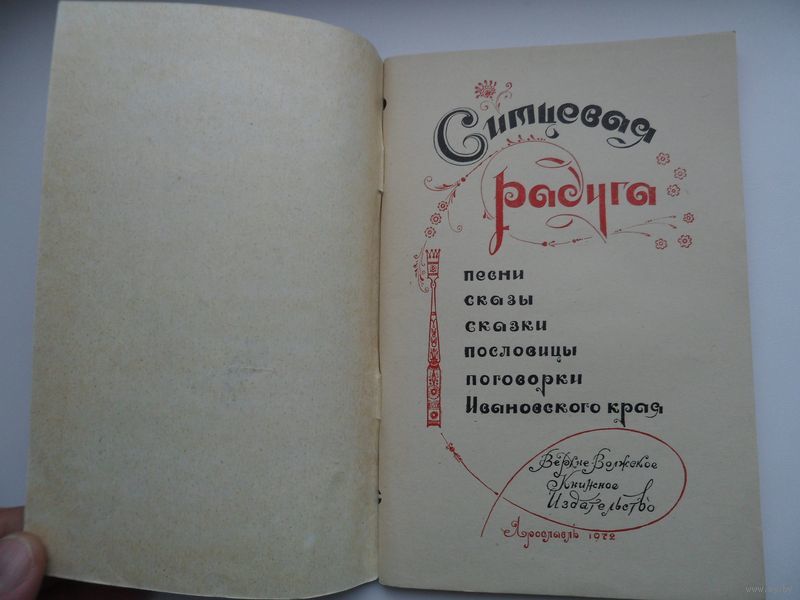 Ситцевая
радуга
песни
сказы
сказки
пословицы
поговорки
Ивановского края
Верхне-Волжское
Книжное
Издательство
Ярославль 1972